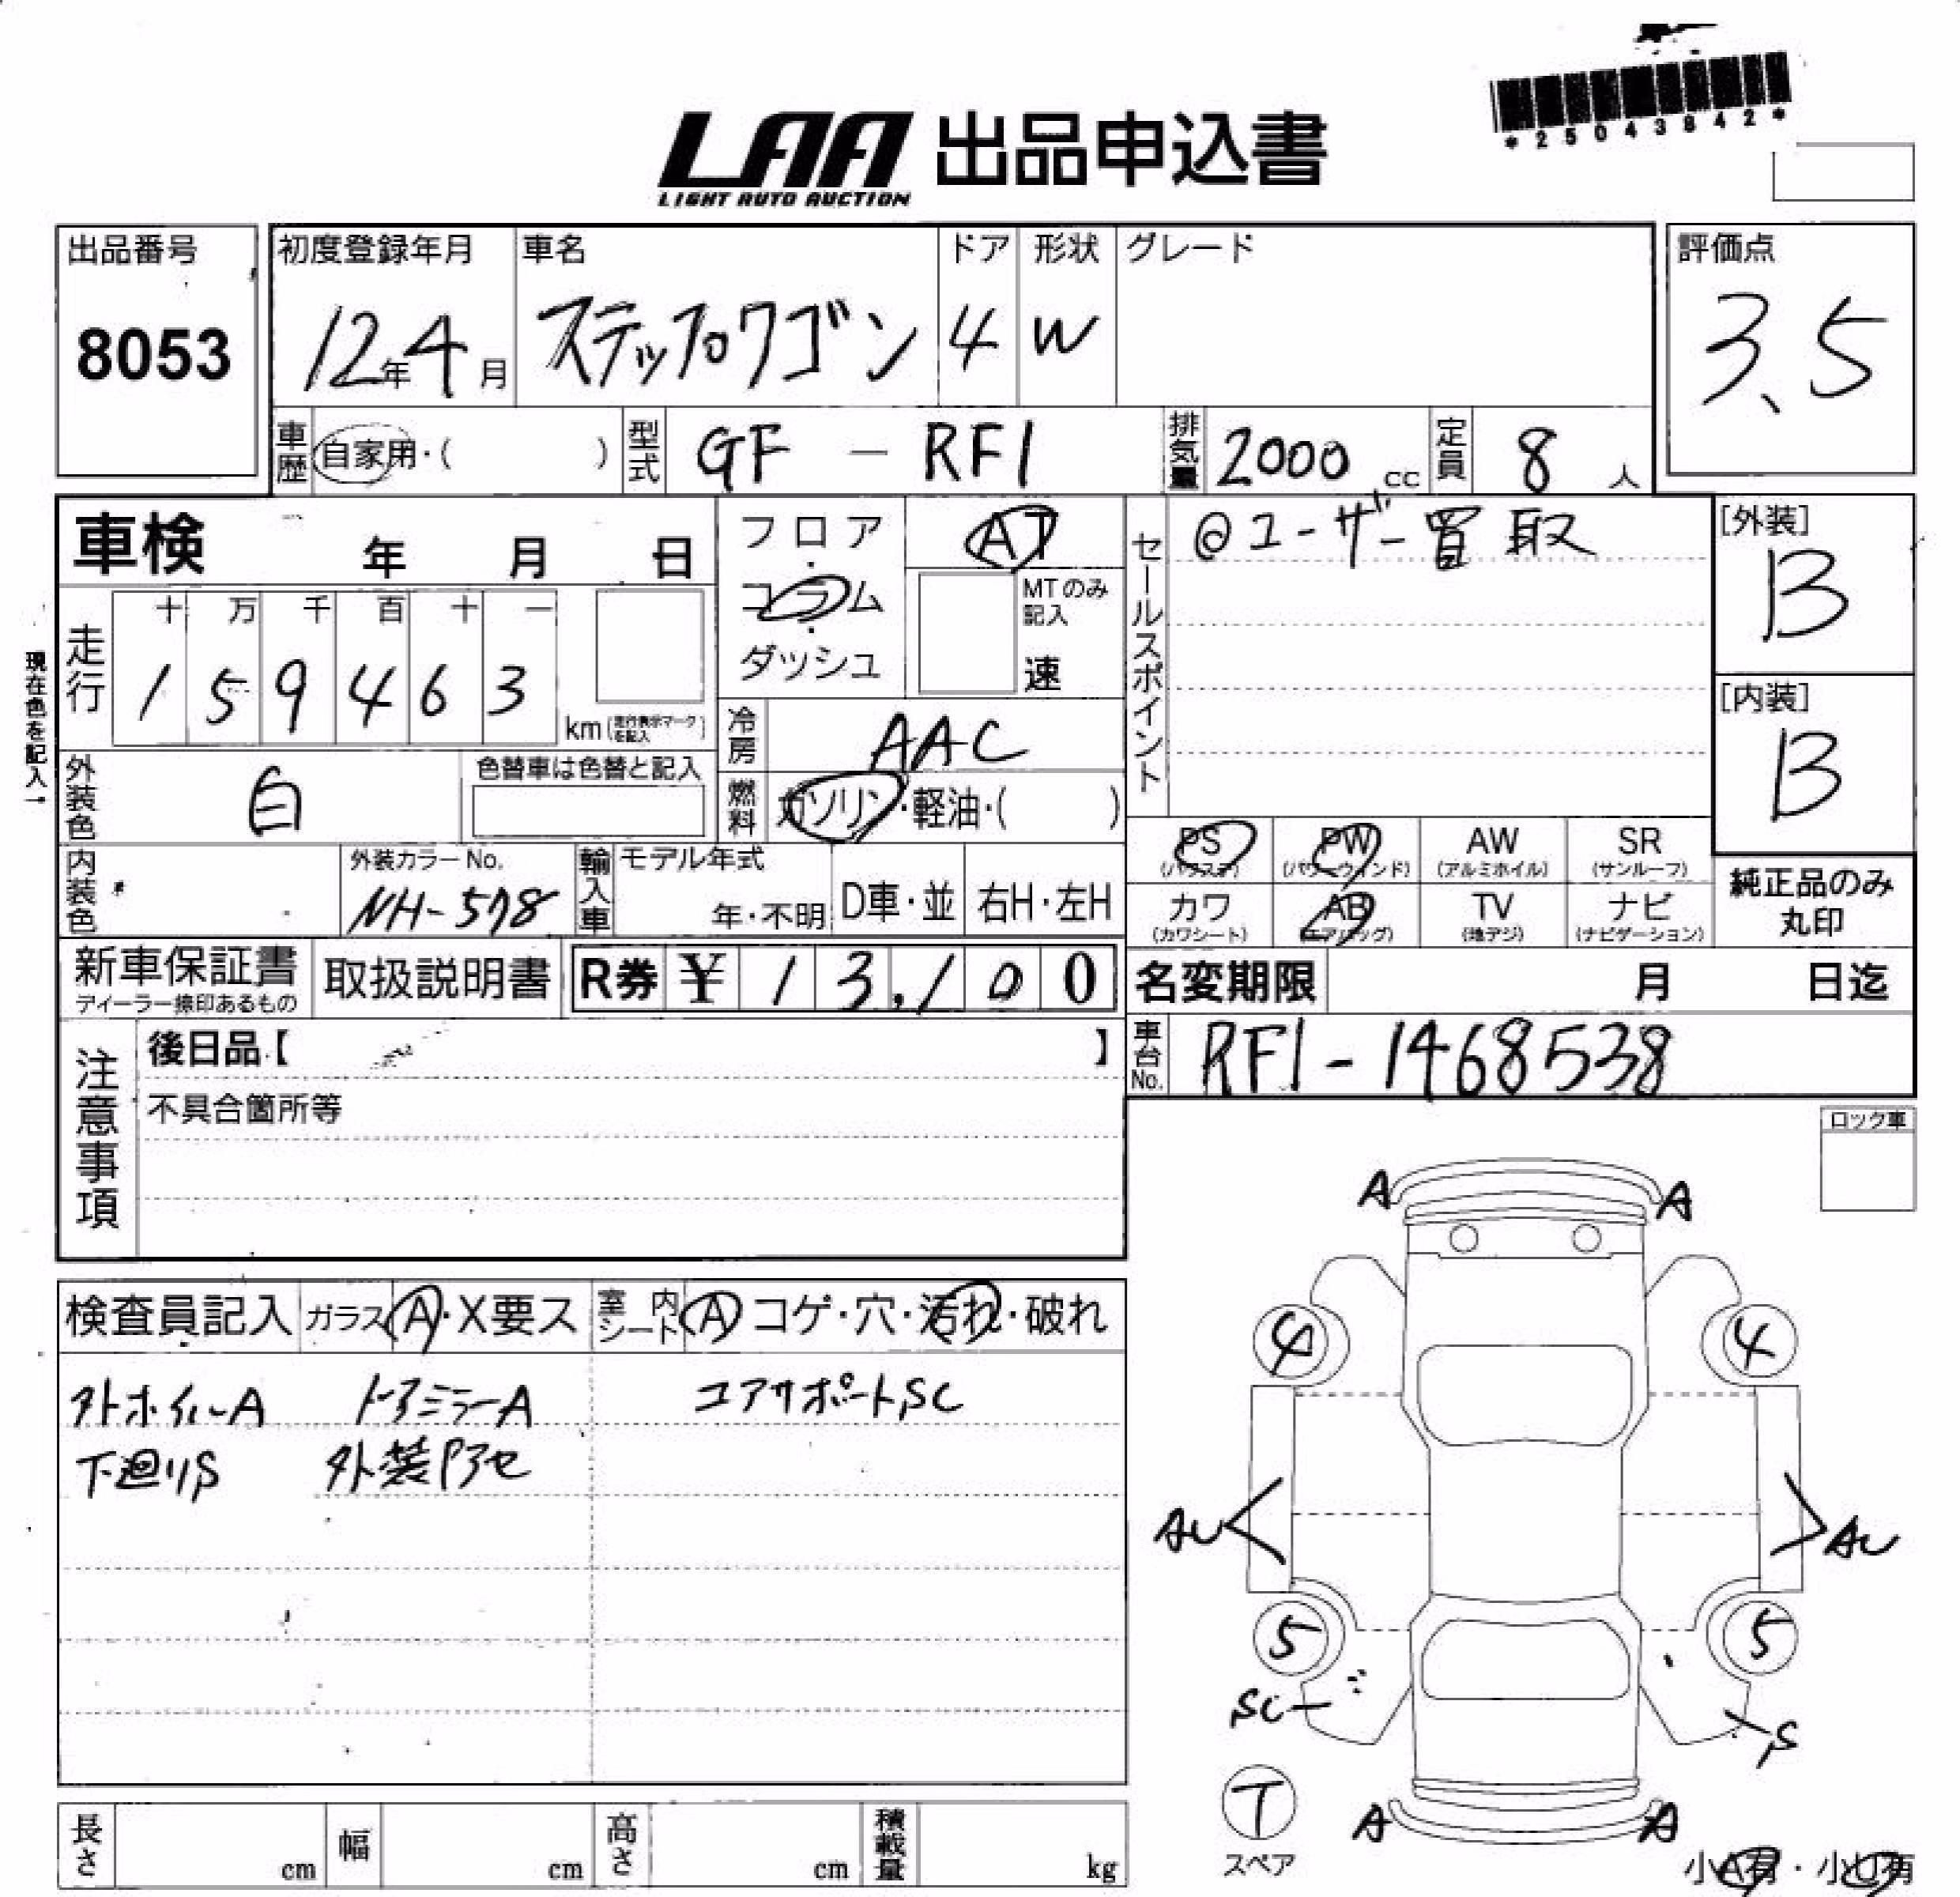 *25043842*
LAA 出品申込書
LIGHT AUTO AUCTION
出品番号
8053
初度登録年月
12年4月
車名
ステップワゴン
ドア
4
形状
W
グレード
評価点
3.5
車歴
自家用・( )
型式
GF - RF1
排気量
2000 cc
定員
8 人
車検 年 月 日
フロア・コラム・ダッシュ
AT
MTのみ記入
速
セールスポイント
@ユーザー買取
[外装]
B
[内装]
B
現在色を記入→
走行
十 万 千 百 十 一
1 5 9 4 6 3
km(走行表示マークを記入)
冷房
AAC
燃料
ガソリン・軽油・( )
外装色
白
色替車は色替と記入
PS
(パワステ)
PW
(パワーウィンド)
AW
(アルミホイル)
SR
(サンルーフ)
カワ
(カワシート)
AB
(エアバッグ)
TV
(地デジ)
ナビ
(ナビゲーション)
純正品のみ
丸印
内装色
外装カラーNo.
NH-578
輸入車
モデル年式
年・不明
D車・並
右H・左H
新車保証書
ディーラー捺印あるもの
取扱説明書
R券 ¥ 1 3,1 0 0
名変期限 月 日迄
車台No.
RF1-1468538
注意事項
後日品【 】
不具合箇所等
ロック車
検査員記入
ガラス A・X要ス
室内シート A コゲ・穴・汚れ・破れ
外ホイルA ドアミラーA コアサポートSC
下廻りS 外装アセ
A A
4 4
AU AU
5 5
SC S
T
スペア
A A
小A有・小U有
長さ cm
幅 cm
高さ cm
積載量 kg